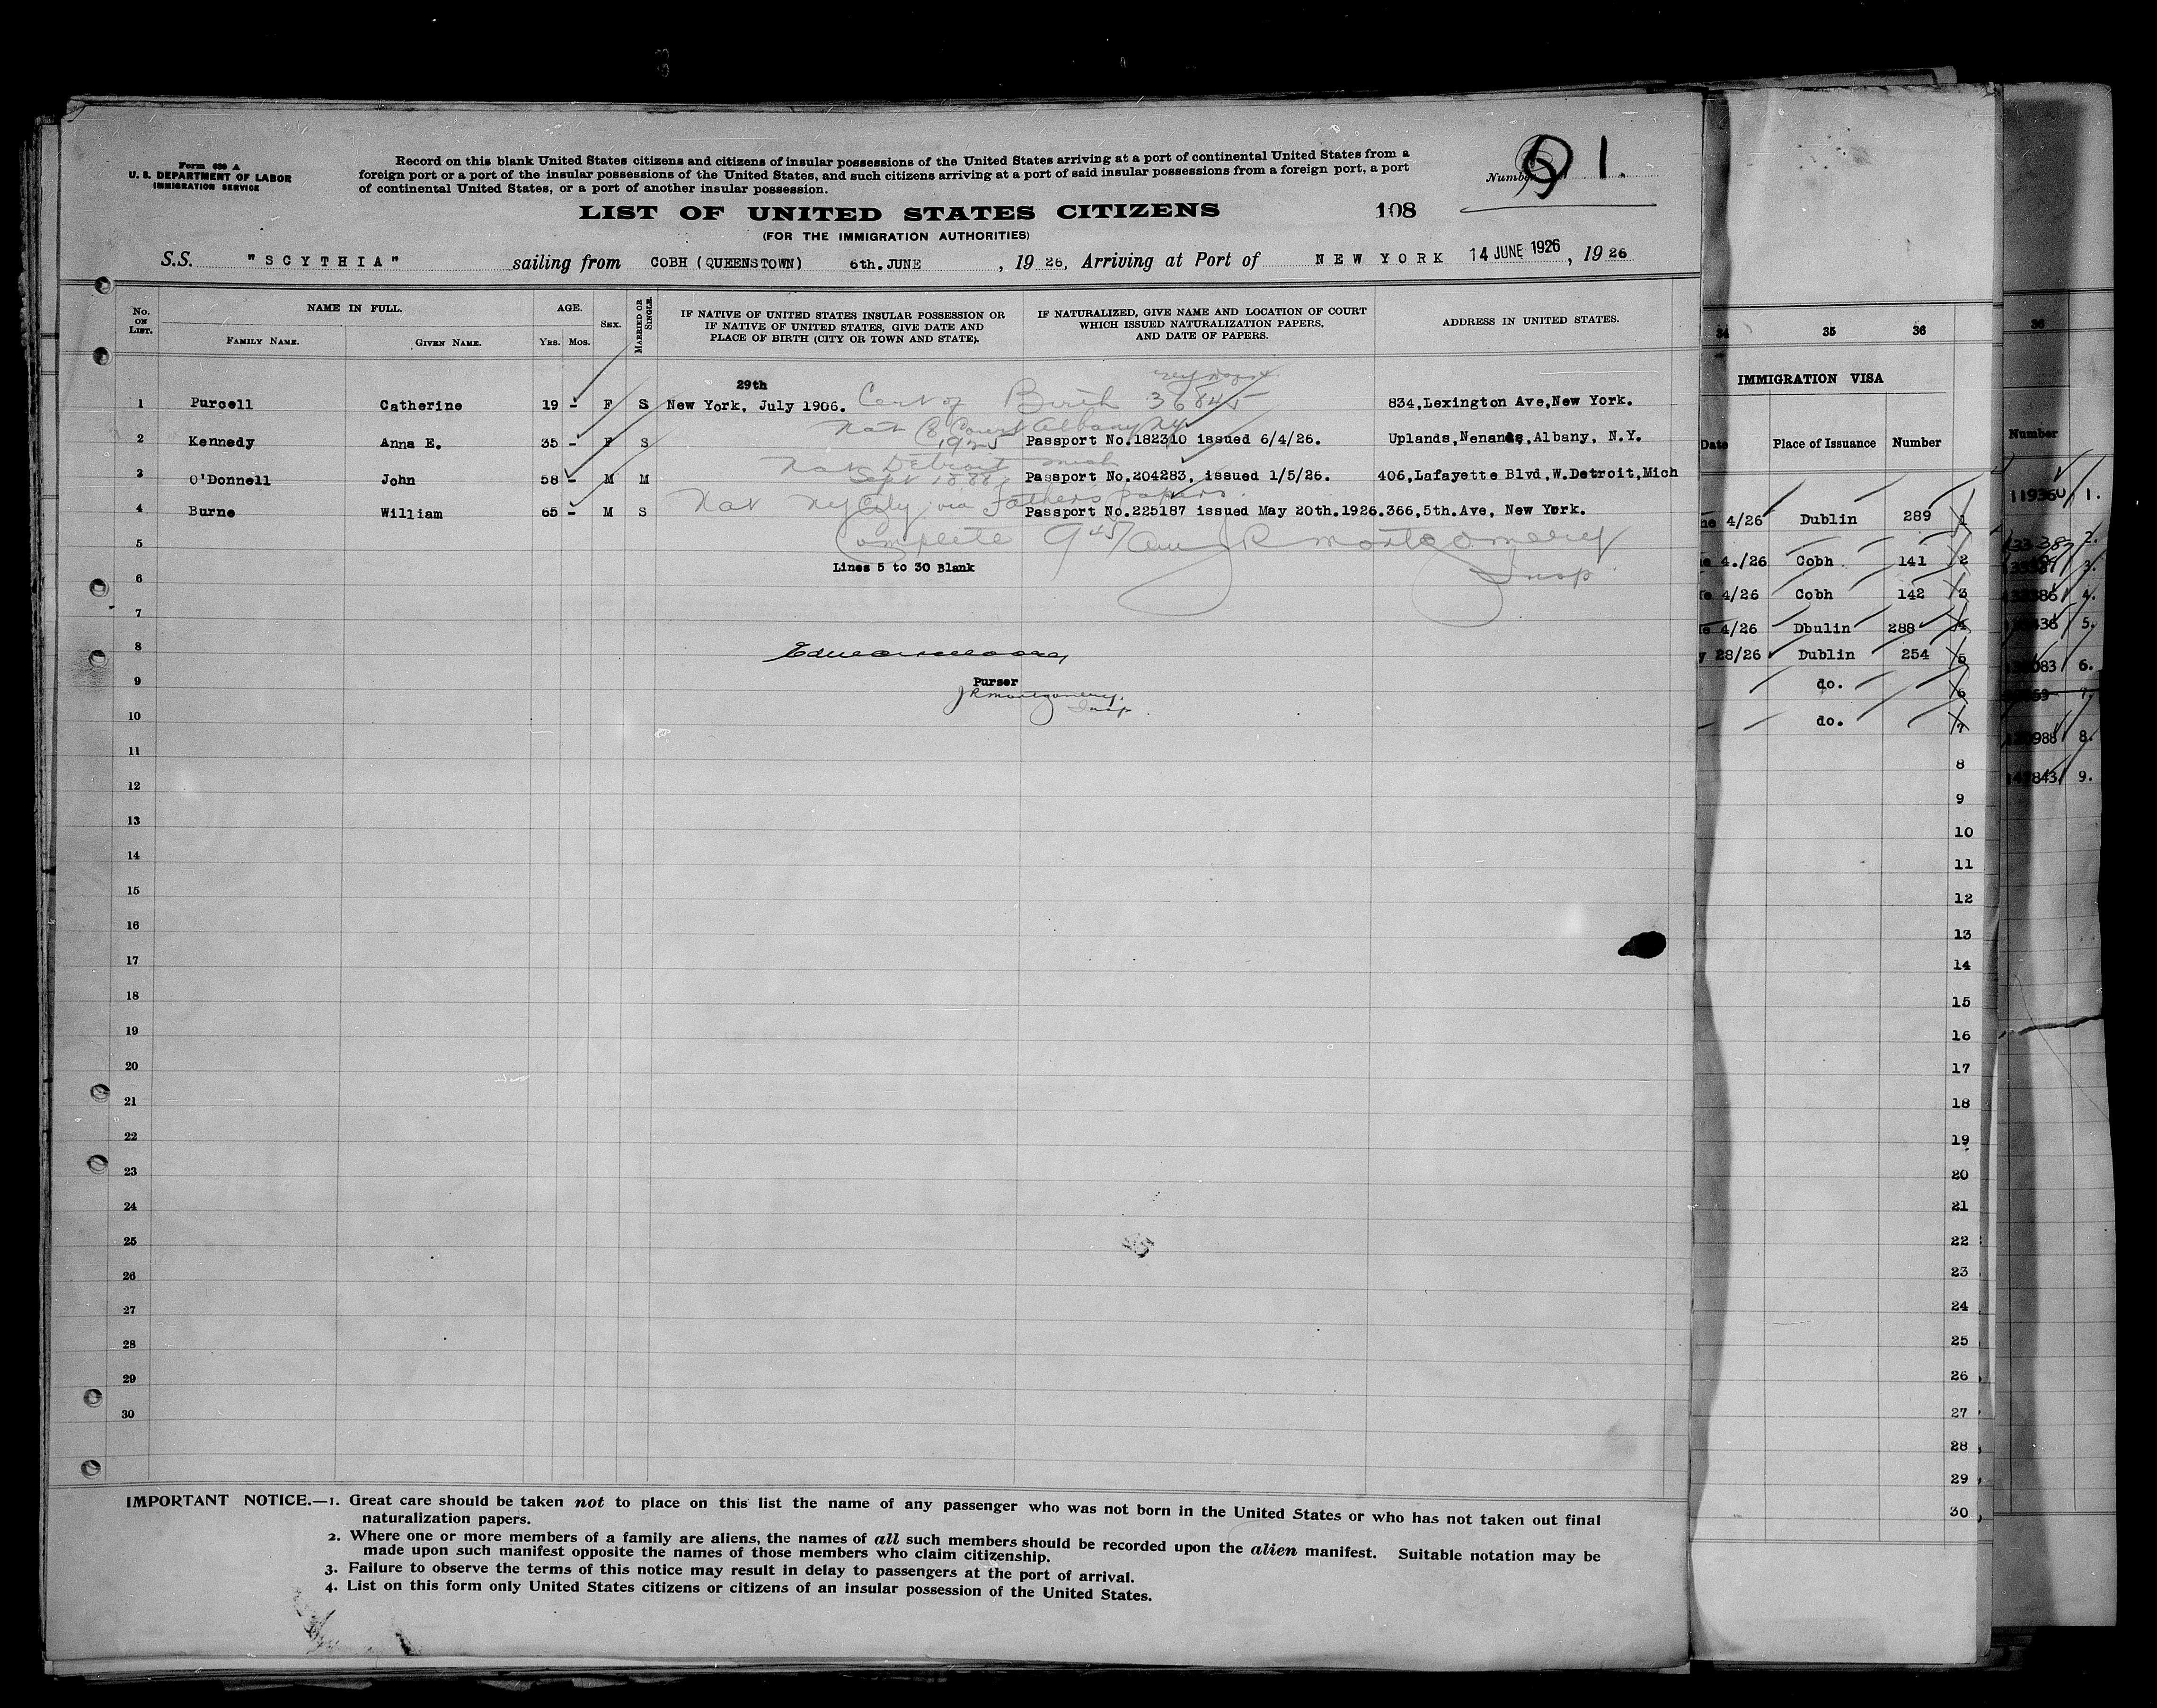 Form 630 A
U. S. DEPARTMENT OF LABOR
IMMIGRATION SERVICE
Record on this blank United States citizens and citizens of insular possessions of the United States arriving at a port of continental United States from a
foreign port or a port of the insular possessions of the United States, and such citizens arriving at a port of said insular possessions from a foreign port, a port
of continental United States, or a port of another insular possession.
Number 91.
LIST OF UNITED STATES CITIZENS 108
(FOR THE IMMIGRATION AUTHORITIES)
S.S. "SCYTHIA" sailing from COBH (QUEENSTOWN) 6th. JUNE, 1926, Arriving at Port of NEW YORK 14 JUNE 1926, 1926
No. ON LIST. NAME IN FULL. AGE. SEX. MARRIED OR SINGLE.
FAMILY NAME. GIVEN NAME. YRS. MOS.
IF NATIVE OF UNITED STATES INSULAR POSSESSION OR
IF NATIVE OF UNITED STATES, GIVE DATE AND
PLACE OF BIRTH (CITY OR TOWN AND STATE).
IF NATURALIZED, GIVE NAME AND LOCATION OF COURT
WHICH ISSUED NATURALIZATION PAPERS,
AND DATE OF PAPERS.
ADDRESS IN UNITED STATES.
29th
1 Purcell Catherine 19 - F S New York, July 1906. Cert of Birth 36845 834,Lexington Ave,New York.
Nat C. Court Albany NY
1925
2 Kennedy Anna E. 35 - F S Passport No.182310 issued 6/4/26. Uplands,Nenands,Albany, N.Y.
Nat Detroit Mich
Sept 1888
3 O'Donnell John 58 - M M Passport No.204283, issued 1/5/26. 406,Lafayette Blvd,W.Detroit,Mich
Nat NY City via Fathers papers.
4 Burne William 65 - M S Passport No.225187 issued May 20th.1926. 366,5th.Ave, New York.
5 Complete 945 JR Montgomery
Insp
Lines 5 to 30 Blank
6
7
8
9 Purser
JR Montgomery.
Insp.
10
11
12
13
14
15
16
17
18
19
20
21
22
23
24
25
26
27
28
29
30
IMPORTANT NOTICE.—1. Great care should be taken not to place on this list the name of any passenger who was not born in the United States or who has not taken out final
naturalization papers.
2. Where one or more members of a family are aliens, the names of all such members should be recorded upon the alien manifest. Suitable notation may be
made upon such manifest opposite the names of those members who claim citizenship.
3. Failure to observe the terms of this notice may result in delay to passengers at the port of arrival.
4. List on this form only United States citizens or citizens of an insular possession of the United States.
34 35 36
IMMIGRATION VISA
Date Place of Issuance Number
4/26 Dublin 289 1
4./26 Cobh 141 2
4/26 Cobh 142 3
4/26 Dbulin 288 4
28/26 Dublin 254 5
do. 6
do. 7
8
9
10
11
12
13
14
15
16
17
18
19
20
21
22
23
24
25
26
27
28
29
30
36
Number
119360 1.
2.
3.
4.
5.
6.
7.
8.
9.